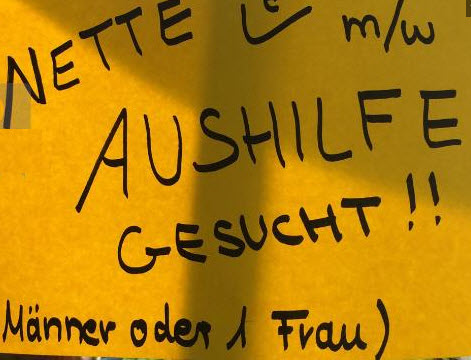 NETTE m/w
AUSHILFE
GESUCHT!!
Männer oder 1 Frau)